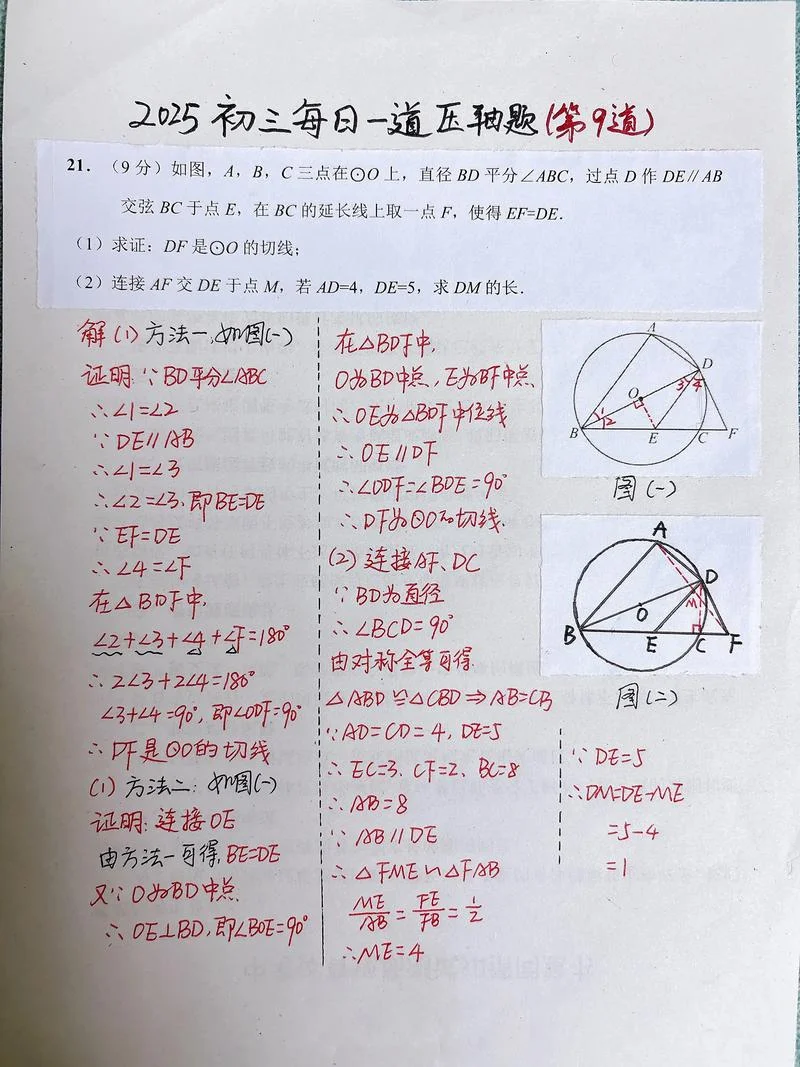 2025初三每日一道压轴题(第9道)
21. (9分)如图,A,B,C三点在⊙O上,直径BD平分∠ABC,过点D作DE∥AB
交弦BC于点E,在BC的延长线上取一点F,使得EF=DE.
(1)求证:DF是⊙O的切线;
(2)连接AF交DE于点M,若AD=4,DE=5,求DM的长.
解(1)方法一,如图(一)
证明:∵BD平分∠ABC
∴∠1=∠2
∵DE∥AB
∴∠1=∠3
∴∠2=∠3,即BE=DE
∵EF=DE
∴∠4=∠F
在△BDF中,
∠2+∠3+∠4+∠F=180°
∴2∠3+2∠4=180°
∠3+∠4=90°,即∠ODF=90°
∴DF是⊙O的切线
(1)方法二:如图(一)
证明:连接OE
由方法一可得,BE=DE
又∵O为BD中点
∴OE⊥BD,即∠BOE=90°
在△BDF中,
O为BD中点,E为BF中点
∴OE为△BDF中位线
∴OE∥DF
∴∠ODF=∠BOE=90°
∴DF为⊙O的切线.
(2)连接AF、DC
∵BD为直径
∴∠BCD=90°
由对称全等可得
△ABD≌△CBD⇒AB=CB
∵AD=CD=4,DE=5
∴EC=3,CF=2,BC=8
∴AB=8
∵AB∥DE
∴△FME∽△FAB
ME/AB=FE/FB=1/2
∴ME=4
∵DE=5
∴DM=DE-ME
=5-4
=1
A
D
O
3 4
1
2
B
E
C
F
图(一)
A
D
M
O
B
E
C
F
图(二)